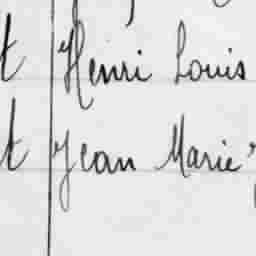 t Henri Louis
t Jean Marie